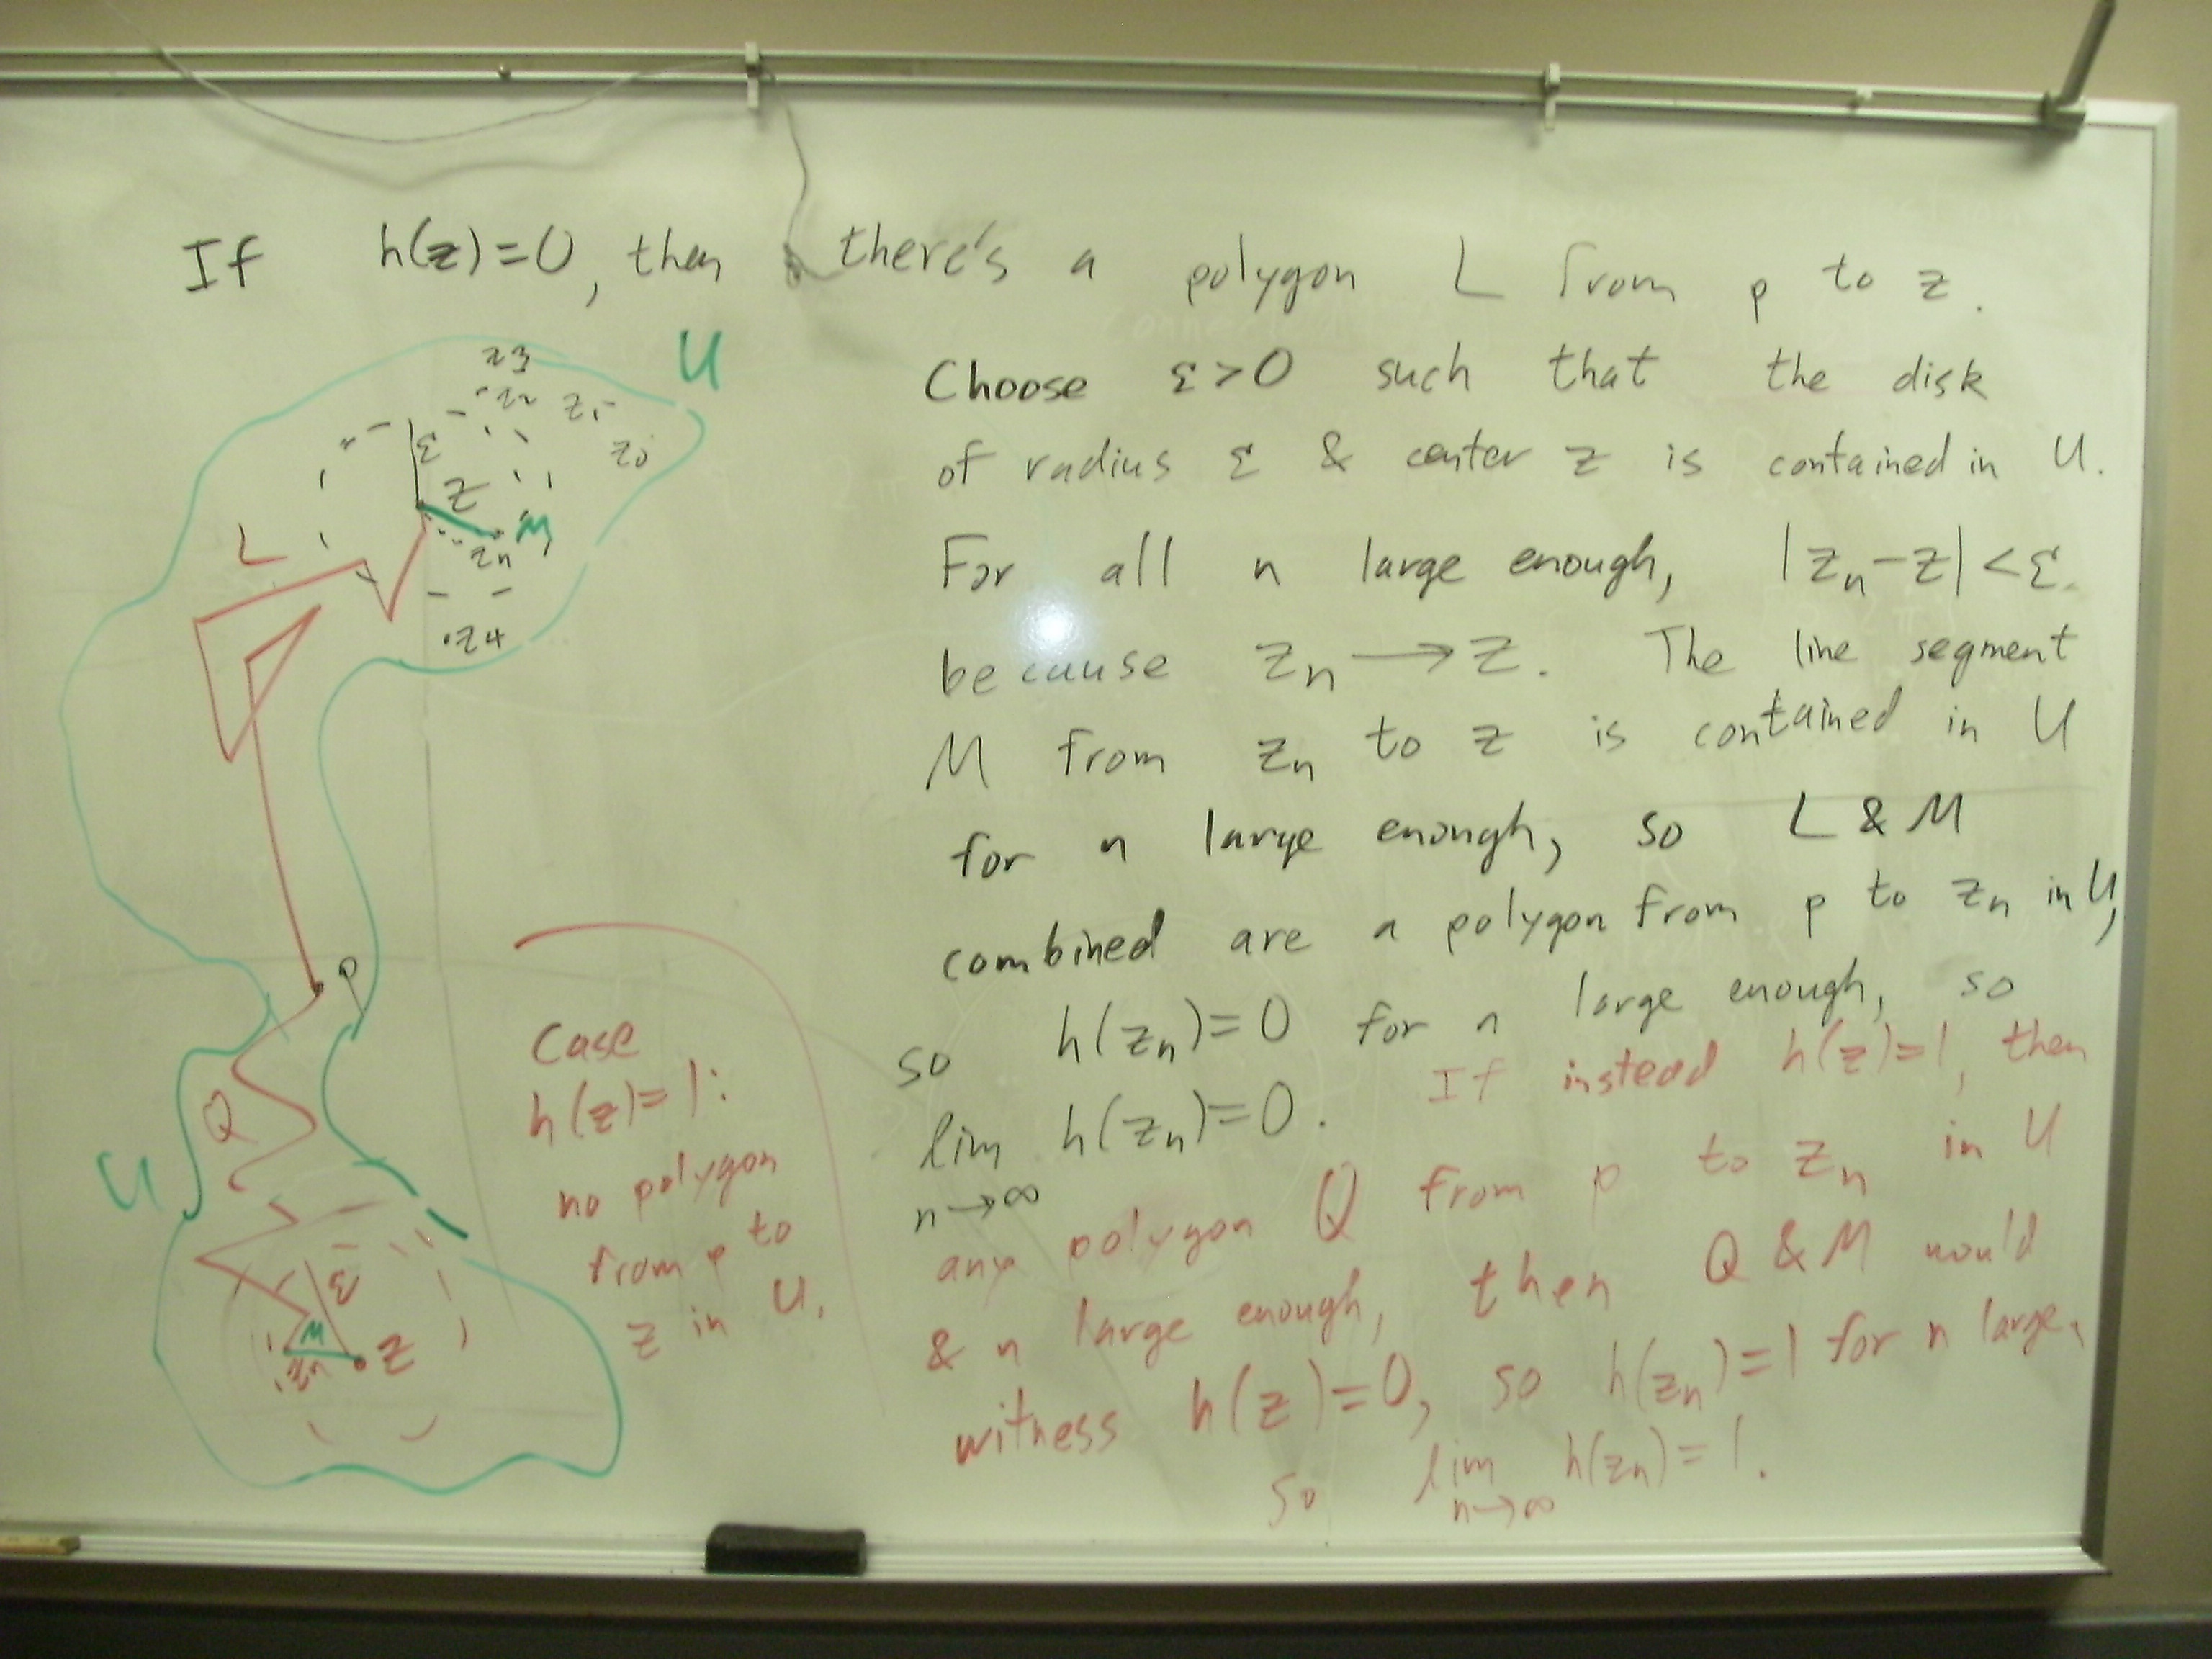 If h(z)=0, then there's a polygon L from p to z.
Choose ε>0 such that the disk
of radius ε & center z is contained in U.
For all n large enough, |zn-z|<ε.
because zn→z. The line segment
M from zn to z is contained in U
for n large enough, so L & M
combined are a polygon from p to zn in U,
so h(zn)=0 for n large enough, so
lim h(zn)=0.
n→∞
If instead h(z)=1, then
any polygon Q from p to zn in U
& n large enough, then Q & M would
witness h(z)=0, so h(zn)=1 for n large,
so lim h(zn)=1.
n→∞
U
z3
z2 z1
z0
ε
z
M
zn
L
z4
p
Q
U
ε
M
zn z
Case
h(z)=1:
no polygon
from p to
z in U.